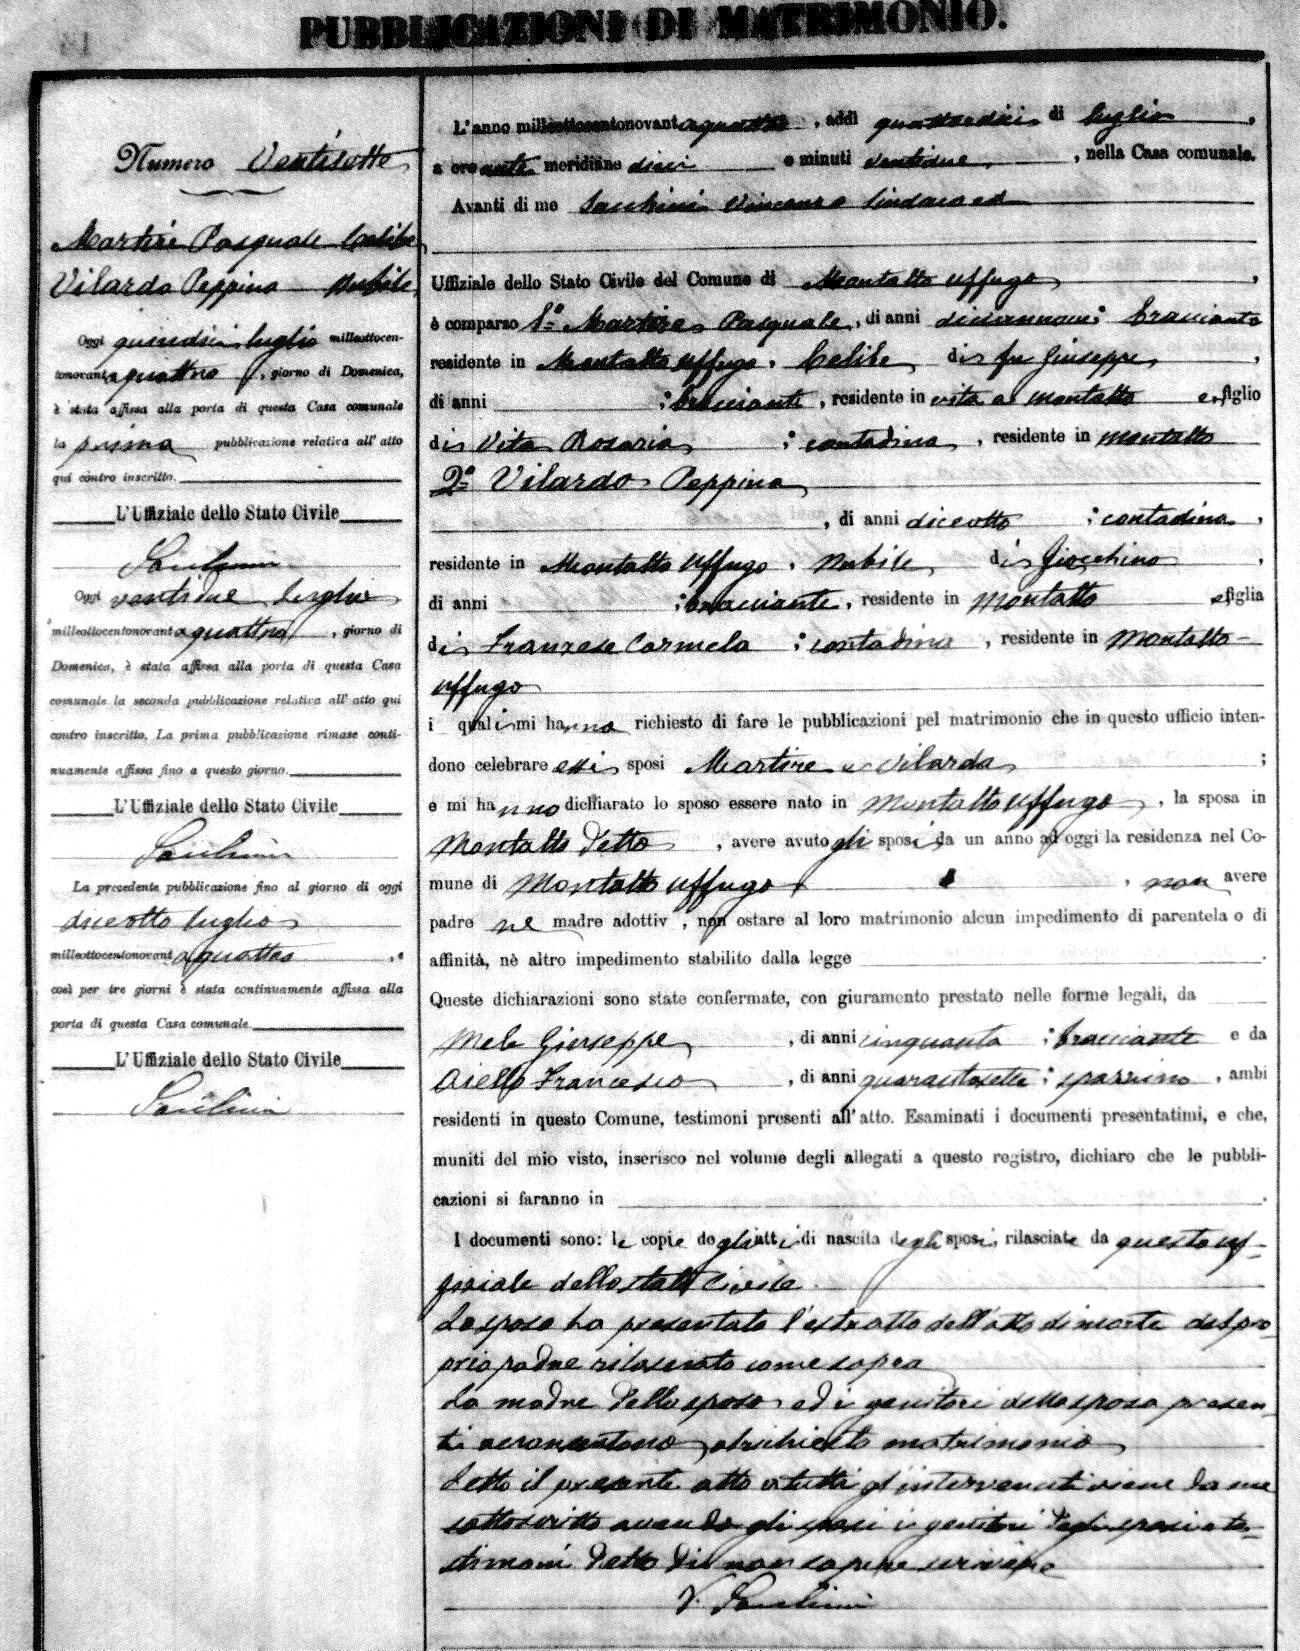 PUBBLICAZIONI DI MATRIMONIO.
Numero Ventisette
Martire Pasquale Celibe
Vilardo Peppina Nubile
Oggi quindici luglio milleottocen-
tonovantaquattro, giorno di Domenica,
è stata affissa alla porta di questa Casa comunale
la prima pubblicazione relativa all'atto
qui contro inscritto.
L'Uffiziale dello Stato Civile
Oggi ventidue luglio
milleottocentonovantaquattro, giorno di
Domenica, è stata affissa alla porta di questa Casa
comunale la seconda pubblicazione relativa all'atto qui
contro inscritto. La prima pubblicazione rimase conti-
nuamente affissa fino a questo giorno.
L'Uffiziale dello Stato Civile
La precedente pubblicazione fino al giorno di oggi
diceotto luglio
milleottocentonovantaquattro, e
così per tre giorni è stata continuamente affissa alla
porta di questa Casa comunale.
L'Uffiziale dello Stato Civile
L'anno milleottocentonovantaquattro, addì quattordici di luglio,
a ore ante meridiane dieci e minuti ventidue, nella Casa comunale.
Avanti di me Vincenzo Sindaco ed
Uffiziale dello Stato Civile del Comune di Montalto Uffugo,
è comparso 1º Martire Pasquale, di anni diciannove; bracciante
residente in Montalto Uffugo, Celibe, di fu Giuseppe,
di anni ; bracciante, residente in vita a Montalto e figlio
di Vita Rosaria ; contadina, residente in Montalto
2ª Vilardo Peppina
, di anni diceotto ; contadina,
residente in Montalto Uffugo, Nubile di Giocchino,
di anni ; bracciante, residente in Montalto e figlia
di Franzese Carmela ; contadina, residente in Montalto
Uffugo
i quali mi hanno richiesto di fare le pubblicazioni pel matrimonio che in questo ufficio inten-
dono celebrare essi sposi Martire e Vilarda ;
e mi hanno dichiarato lo sposo essere nato in Montalto Uffugo, la sposa in
Montalto detto, avere avuto gli sposi da un anno ad oggi la residenza nel Co-
mune di Montalto Uffugo, non avere
padre ne madre adottiv, non ostare al loro matrimonio alcun impedimento di parentela o di
affinità, nè altro impedimento stabilito dalla legge .
Queste dichiarazioni sono state confermate, con giuramento prestato nelle forme legali, da
Mele Giuseppe, di anni cinquanta ; bracciante e da
Aiello Francesco, di anni quarantasette ; spazzino, ambi
residenti in questo Comune, testimoni presenti all'atto. Esaminati i documenti presentatimi, e che,
muniti del mio visto, inserisco nel volume degli allegati a questo registro, dichiaro che le pubbli-
cazioni si faranno in .
I documenti sono: le copie degli atti di nascita degli sposi, rilasciate da questo uf-
fiziale dello stato Civile
Lo sposo ha presentato l'estratto dell'atto di morte del pro-
prio padre rilasciato come sopra
La madre dello sposo ed i genitori della sposa presen-
ti acconsentono al richiesto matrimonio
Letto il presente atto a tutti gl'intervenuti viene da me
sottoscritto avendo gli sposi i genitori degli sposi e te-
stimoni detto di non sapere scrivere